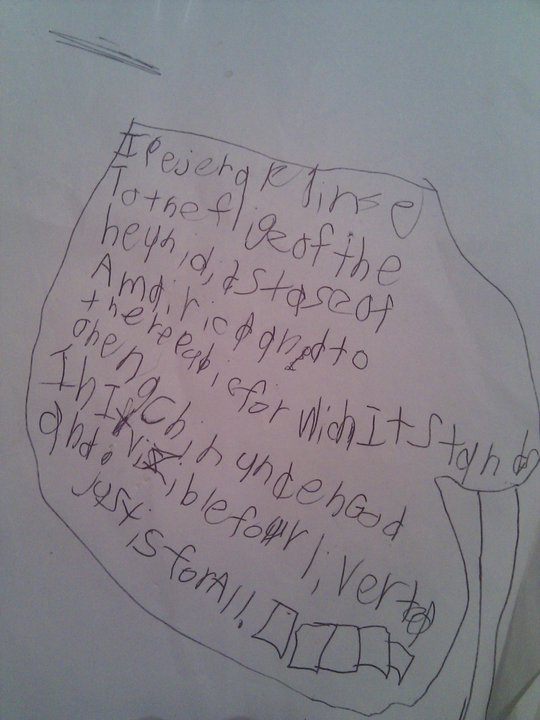 I Plejerg Rlinse
To the flige of the
heynid, astaseof
Amdirica anedto
therepabicfor Which It Stands
oneng Chin yndenGod
In Ifviziblefoür li, verted
and
justisforAll.